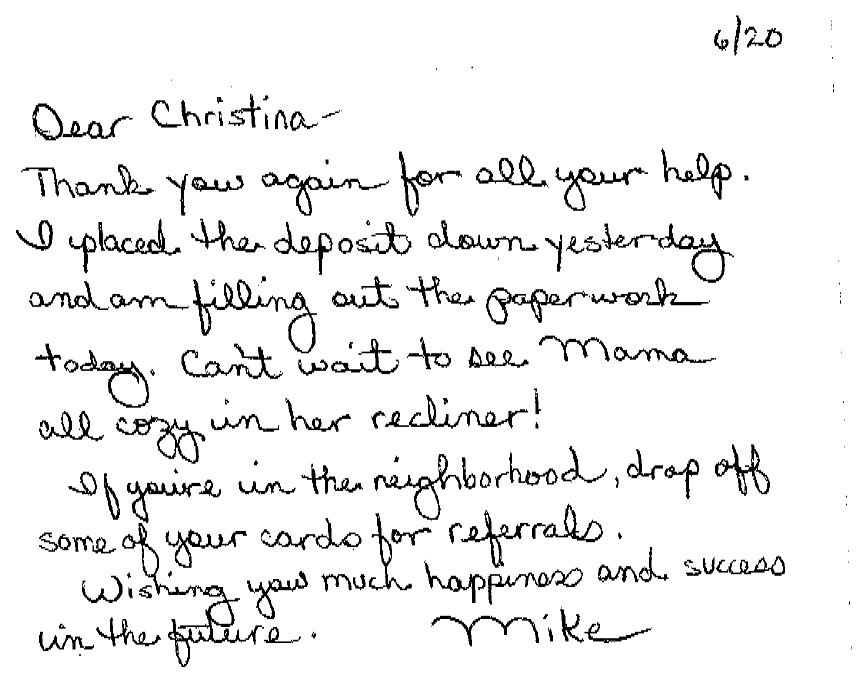 6/20
Dear Christina-
Thank you again for all your help.
I placed the deposit down yesterday
and am filling out the paperwork
today. Can't wait to see Mama
all cozy in her recliner!
If you're in the neighborhood, drop off
some of your cards for referrals.
Wishing you much happiness and success
in the future. Mike